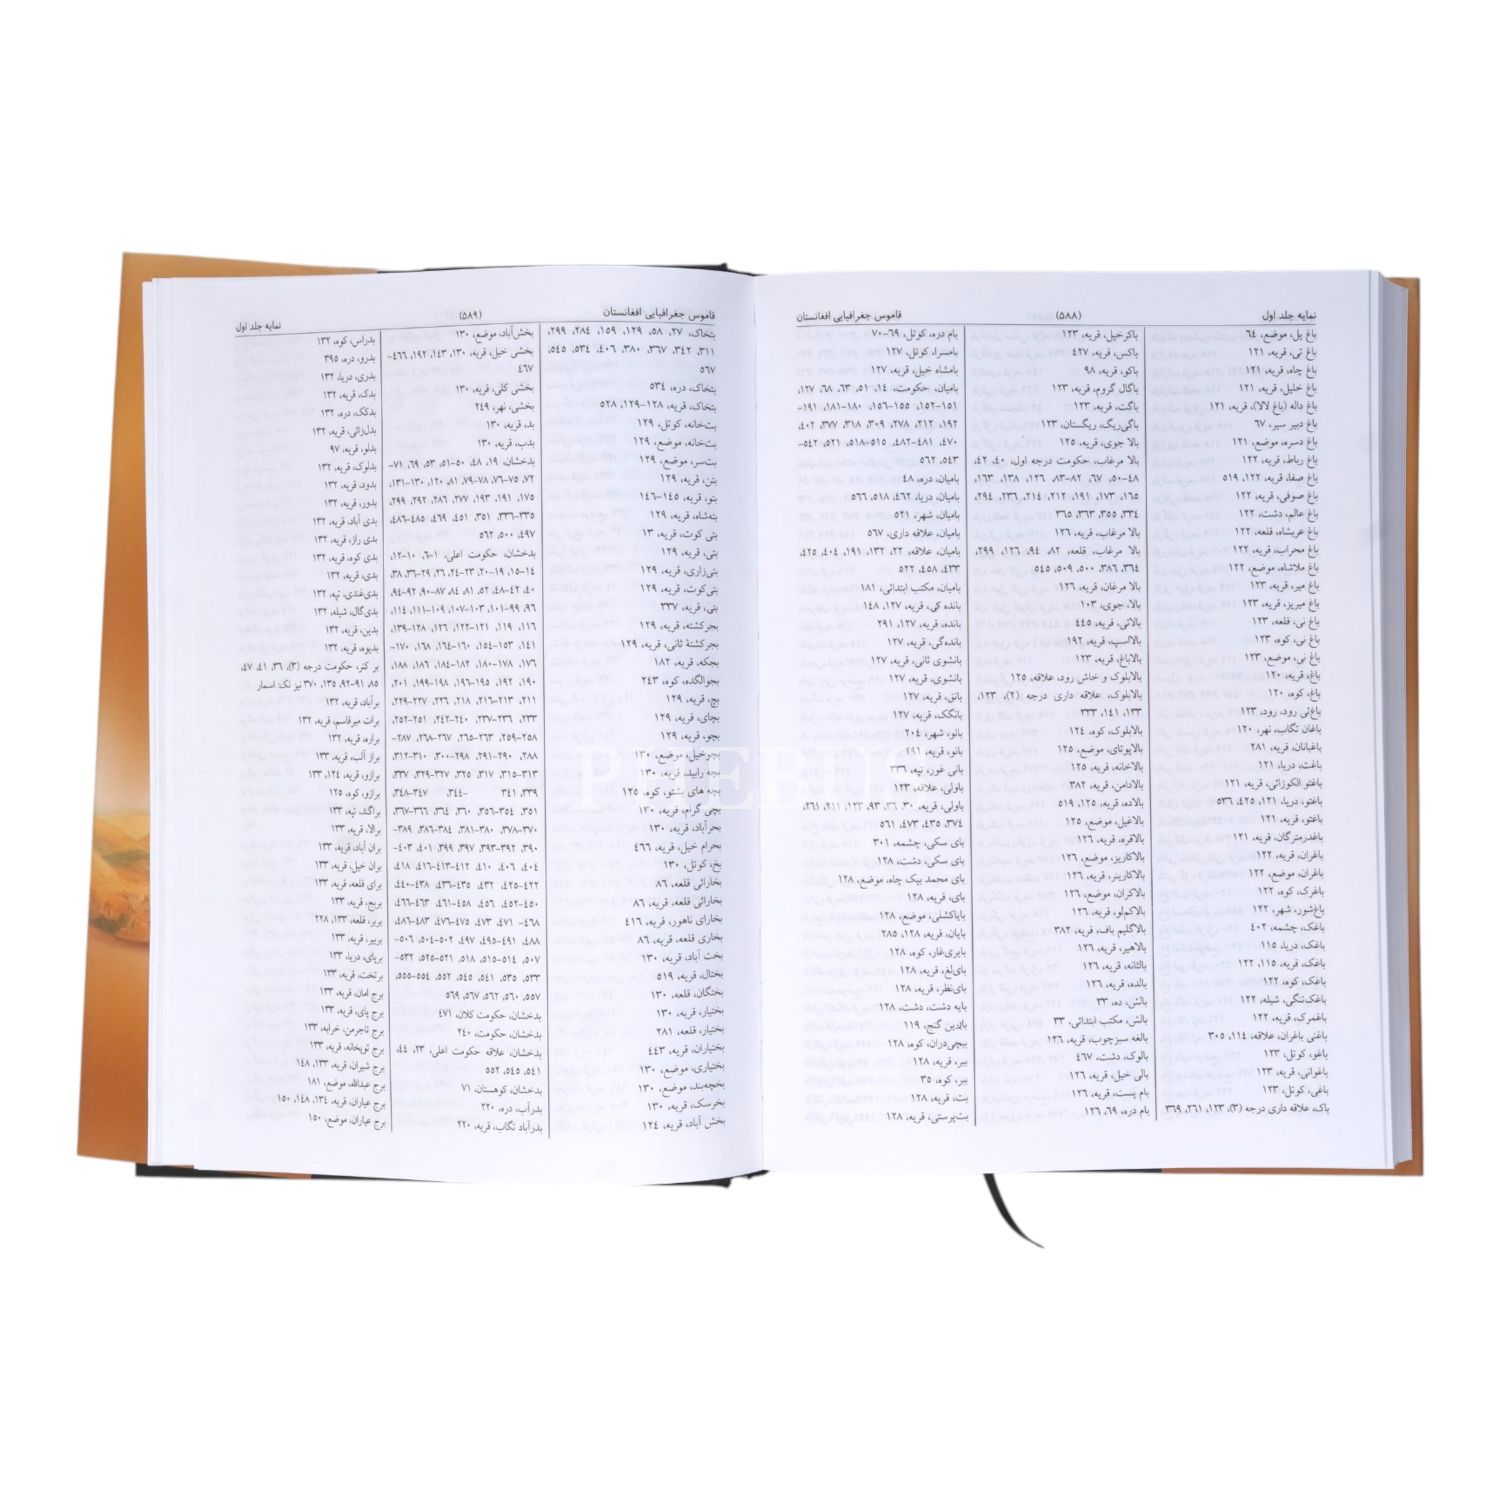 نمایه جلد اول
(۵۸۸)
قاموس جغرافیایی افغانستان
باغ پل، موضع، ٦٤
باغ تی، قریه، ۱۲۱
باغ چاه، قریه، ۱۲۱
باغ خلیل، قریه، ۱۲۱
باغ داله (باغ لالا)، قریه، ۱۲۱
باغ دبیر سیر، ٦٧
باغ دسره، موضع، ۱۲۱
باغ رباط، قریه، ۱۲۲
باغ صفا، قریه، ۱۲۲، ۵۱۹
باغ صوفی، قریه، ۱۲۲
باغ عالم، دشت، ۱۲۲
باغ عربشاه، قلعه، ۱۲۲
باغ محراب، قریه، ۱۲۲
باغ ملاشاه، موضع، ۱۲۲
باغ میر، قریه، ۱۲۳
باغ میریز، قریه، ۱۲۳
باغ نی، قلعه، ۱۲۳
باغ نی، کوه، ۱۲۳
باغ نی، موضع، ۱۲۳
باغ، قریه، ۱۲۰
باغ، کوه، ۱۲۰
باغ‌نی رود، رود، ۱۲۳
باغان تگاب، نهر، ۱۲۰
باغبانان، قریه، ۲۸۱
باغت، دریا، ۱۲۱
باغتو الکوزائی، قریه، ۱۲۱
باغتو، دریا، ۱۲۱، ٤٢٥، ٥٣٦
باغتو، قریه، ۱۲۱
باغدرمترگان، قریه، ۱۲۱
باغران، قریه، ۱۲۲
باغران، موضع، ۱۲۲
باغرک، کوه، ۱۲۲
باغ‌شور، شهر، ۱۲۲
باغک، چشمه، ٤٠٢
باغک، دریا، ۱۱۵
باغک، قریه، ۱۱۵، ۱۲۲
باغک، کوه، ۱۲۲
باغک‌تنگی، شیله، ۱۲۲
باغمرک، قریه، ۱۲۲
باغنی باغران، علاقه، ١١٤، ٣٠٥
باغو، کوتل، ۱۲۳
باغوانی، قریه، ۱۲۳
باغی، کوتل، ۱۲۳
باک، علاقه داری درجه (۳)، ۱۲۳، ٢٦١، ٣٦٩
باکرخیل، قریه، ۱۲۳
باکس، قریه، ٤٢٧
باکو، قریه، ۹۸
باگال گروم، قریه، ۱۲۳
باگت، قریه، ۱۲۳
باگی‌ریگ، ریگستان، ۱۲۳
بالا جوی، قریه، ۱۲۵
بالا مرغاب، حکومت درجه اول، ٤٠، ٤٢،
٤٨-٥٠، ٦٧، ۸۲-۸۳، ١٢٦، ۱۳۸، ١٦٣،
١٦٥، ۱۷۳، ۱۹۱، ۲۱۲، ٢١٤، ٢٣٦، ٢٩٤،
٣٣٤، ٣٥٥، ٣٦٣، ٣٦٥
بالا مرغاب، قریه، ١٢٦
بالا مرغاب، قلعه، ۸۲، ٩٤، ١٢٦، ۲۹۹،
٣٦٤، ٣٨٦، ۵۰۰، ۵۰۹، ٥٤٥
بالا مرغان، قریه، ١٢٦
بالا، جوی، ۱۰۳
بالائی، قریه، ٤٤٥
بالااسپ، قریه، ۱۹۲
بالاباغ، قریه، ۱۲۳
بالابلوک و خاش رود، علاقه، ۱۲۵
بالابلوک، علاقه داری درجه (۲)، ۱۲۳،
۱۳۳، ١٤١، ۳۳۳
بالابلوک، کوه، ١٢٤
بالاپوتای، موضع، ۱۲۵
بالاخانه، قریه، ۱۲۵
بالادامن، قریه، ۳۸۲
بالاده، قریه، ۱۲۵، ۵۱۹
بالاغیل، موضع، ۱۲۵
بالاقره، قریه، ١٢٦
بالاکاریز، موضع، ١٢٦
بالاکارینر، قریه، ١٢٦
بالاکران، موضع، ١٢٦
بالاکم‌لو، قریه، ١٢٦
بالاگلیم باف، قریه، ۳۸۲
بالاهیر، قریه، ١٢٦
بالثانه، قریه، ١٢٦
بالده، قریه، ١٢٦
بالش، ده، ۳۳
بالش، مکتب ابتدائی، ۳۳
بالغه سبزچوب، قریه، ١٢٦
بالوک، دشت، ٤٦٧
بالی خیل، قریه، ١٢٦
بام پست، قریه، ١٢٦
بام دره، ٦٩، ١٢٦
بام دره، کوتل، ٦٩-٧٠
بامسرا، کوتل، ۱۲۷
بامشاه خیل، قریه، ۱۲۷
بامیان، حکومت، ١٤، ۵۱، ٦٣، ٦٨، ۱۲۷،
۱۵۱-۱۵۲، ١٥٥-١٥٦، ۱۸۰-۱۸۱، ۱۹۱-
۱۹۲، ۲۱۲، ۲۷۸، ۳۰۹، ۳۱۸، ۳۷۷، ٤٠٢،
٤٧٠، ٤٨١-٤٨٢، ٥١٥-٥١٨، ٥٢١، ٥٤٢-
٥٤٣، ٥٦٢
بامیان، دره، ٤٨
بامیان، دریا، ٤٦٢، ۵۱۸، ٥٦٦
بامیان، شهر، ۵۲۱
بامیان، علاقه داری، ٥٦٧
بامیان، علاقه، ۲۲، ۱۳۲، ۱۹۱، ٤٠٤، ٤٢٥،
٤٣٣، ٤٥٨، ۵۲۲
بامیان، مکتب ابتدائی، ۱۸۱
بانده کی، قریه، ۱۲۷، ١٤٨
بانده، قریه، ۱۲۷، ۲۹۱
بانده‌گی، قریه، ۱۲۷
بانشوی ثانی، قریه، ۱۲۷
بانشوی، قریه، ۱۲۷
بانق، قریه، ۱۲۷
بانگک، قریه، ۱۲۷
بانو، شهر، ٢٠٤
بانو، قریه، ۲۹۱
بانی غور، تپه، ٢٣٦
باولی، علاقه، ۱۲۳
باولی، قریه، ۳۰، ٣٦، ۹۳، ۱۲۳، ٢٤١، ٢٦١،
٣٧٤، ٤٣٥، ٤٧٣، ٥٦١
بای سکی، چشمه، ۳۰۱
بای سکی، دشت، ۱۲۸
بای محمد بیک چاه، موضع، ۱۲۸
بای، قریه، ۱۲۸
بایاکشلی، موضع، ۱۲۸
بایان، قریه، ۱۲۸، ۲۸۵
بایری‌غار، کوه، ۱۲۸
بای‌لغ، قریه، ۱۲۸
بای‌نظر، قریه، ۱۲۸
بایه دشت، دشت، ۱۲۸
بالدین گنج، قریه، ۱۱۹
ببچی‌دران، کوه، ۱۲۸
ببر، قریه، ۱۲۸
ببر، کوه، ۳۵
بت، قریه، ۱۲۸
بت‌پرستی، قریه، ۱۲۸
قاموس جغرافیایی افغانستان
(۵۸۹)
نمایه جلد اول
بتخاک، ۲۷، ۵۸، ۱۲۹، ۱۵۹، ٢٨٤، ۲۹۹،
۳۱۱، ٣٤٢، ٣٦٧، ۳۸۰، ٤٠٦، ٥٣٤، ٥٤٥،
٥٦٧
بتخاک، دره، ٥٣٤
بتخاک، قریه، ۱۲۸-۱۲۹، ۵۲۸
بت‌خانه، کوتل، ۱۲۹
بت‌خانه، موضع، ۱۲۹
بت‌سر، موضع، ۱۲۹
بتن، قریه، ۱۲۹
بتو، قریه، ١٤٥-١٤٦
بته‌شاه، قریه، ۱۲۹
بتی کوت، قریه، ۱۳
بتی، قریه، ۱۲۹
بتی‌زاری، قریه، ۱۲۹
بتی‌کوت، قریه، ۱۲۹
بتی، قریه، ۳۳۷
بجرکشته، قریه، ۱۲۹
بجرکشتهٔ ثانی، قریه، ۱۲۹
بجکه، قریه، ۱۸۲
بجوالگده، کوه، ٢٤٣
بچ، قریه، ۱۲۹
بچای، قریه، ۱۲۹
بچو، قریه، ۱۲۹
بچوخیل، موضع، ۱۳۰
بچه رابید، قریه، ۱۳۰
بچه های بشتو، کوه، ۱۲۵
بچی گرام، قریه، ۱۳۰
بحرآباد، قریه، ۱۳۰
بحرام خیل، قریه، ٤٦٦
بخ، کوتل، ۱۳۰
بخارائی قلعه، ٨٦
بخارائی قلعه، قریه، ٨٦
بخارای ناهور، قریه، ٤١٦
بخاری قلعه، قریه، ٨٦
بخت آباد، قریه، ۱۳۰
بختال، قریه، ۵۱۹
بختگان، قلعه، ۱۳۰
بختیار، قریه، ۱۳۰
بختیار، قلعه، ۲۸۱
بختیاران، قریه، ٤٤٣
بختیاری، موضع، ۱۳۰
بخچه‌بند، موضع، ۱۳۰
بخرسک، قریه، ۱۳۰
بخش آباد، قریه، ١٢٤
بخش‌آباد، موضع، ۱۳۰
بخشی خیل، قریه، ۱۳۰، ١٤٣، ۱۹۲، ٤٦٦-
٤٦٧
بخشی کلی، قریه، ۱۳۰
بخشی، نهر، ٢٤٩
بد، قریه، ۱۳۰
بدب، قریه، ۱۳۰
بدخشان، ۱۹، ٤٨، ۵۰-۵۱، ۵۳، ٦٩، ۷۱-
۷۲، ٧٥-٧٦، ۷۸-۷۹، ۸۱، ۱۲۰، ۱۳۰-۱۳۱،
۱۷۵، ۱۹۱، ۱۹۳، ۲۷۷، ٢٨٦، ۲۹۲، ۲۹۹،
٣٣٥-٣٣٦، ۳۵۱، ٤٥١، ٤٦٩، ٤٨٥-٤٨٦،
٤٩٧، ۵۰۰، ٥٦٢
بدخشان، حکومت اعلی، ١-٦، ۱۰-۱۲،
١٤-١٥، ۱۹-۲۰، ٢٣-٢٤، ٢٦، ٢٩-٣٦، ۳۸،
٤٠، ٤٢-٤٨، ۵۲، ۸۱، ٨٤، ۸۷-۹۰، ٩٢-٩٤،
٩٦، ۹۹-۱۰۱، ۱۰۳-۱۰۷، ۱۰۹-۱۱۱، ١١٤،
١١٦، ۱۱۹، ۱۲۱-۱۲۲، ١٢٦، ۱۲۸-۱۳۹،
١٤١، ١٥٣-١٥٤، ١٦٠-١٦٤، ١٦٨، ۱۷۰-
١٧٦، ۱۷۸-۱۸۰، ١٨٢-١٨٤، ١٨٦، ۱۸۸،
۱۹۰، ۱۹۲، ١٩٥-١٩٦، ۱۹۸-۱۹۹، ۲۰۱،
۲۱۱، ٢١٣-٢١٦، ۲۱۸، ٢٢٦، ۲۲۷-۲۲۹،
۲۳۳، ٢٣٦-٢٣٧، ٢٤٠-٢٤٢، ۲۵۱-۲۵۲،
۲۵۸-۲۵۹، ٢٦٣-٢٦٥، ٢٦٧-٢٦٨، ۲۸۷-
۲۸۸، ۲۹۰-۲۹۱، ۲۹۸-۳۰۰، ۳۱۰-۳۱۲،
۳۱۳-۳۱۵، ۳۱۷، ۳۲۵، ۳۲۷-۳۲۹، ۳۳۷،
۳۳۹، ٣٤١ -٣٤٤، ٣٤٧-٣٤٨،
۳۵۱، ٣٥٤-٣٥٦، ٣٦٠، ٣٦٤، ٣٦٦-٣٦٧،
۳۷۰-۳۷۸، ۳۸۰-۳۸۱، ٣٨٤-٣٨٦، ۳۸۹-
۳۹۰، ۳۹۲-۳۹۳، ۳۹۷، ۳۹۹، ٤٠١، ٤٠٣-
٤٠٤، ٤٠٦، ٤١٠، ٤١٢-٤١٣، ٤١٦، ٤١٨،
٤٢٢-٤٢٥، ٤٣٢، ٤٣٥-٤٣٦، ٤٣٨-٤٤٠،
٤٥٠-٤٥٢، ٤٥٦، ٤٥٨-٤٦١، ٤٦٣-٤٦٦،
٤٦٨-٤٧١، ٤٧٣، ٤٧٥-٤٧٦، ٤٨٣-٤٨٦،
٤٨٨، ٤٩١-٤٩٥، ٤٩٧، ٥٠٢-٥٠٤، ٥٠٦-
۵۰۷، ٥١٤-٥١٥، ۵۱۸، ۵۲۱-۵۲۵، ۵۳۲-
۵۳۳، ۵۳۵، ٥٤١، ٥٤٥، ۵۵۲، ٥٥٤-٥٥٥،
۵۵۷، ٥٦٠، ٥٦٢، ٥٦٧، ٥٦٩
بدخشان، حکومت کلان، ٤٧١
بدخشان، حکومت، ٢٤٠
بدخشان، علاقه حکومت اعلی، ۲۳، ٤٤،
٥٤١، ٥٤٥، ۵۵۲
بدخشان، کوهستان، ۷۱
بدرآب، دره، ۲۲۰
بدرآباد تگاب، قریه، ۲۲۰
بدراس، کوه، ۱۳۲
بدرو، دره، ۳۹۵
بدری، دریا، ۱۳۲
بدک، قریه، ۱۳۲
بدکک، دره، ۱۳۲
بدل‌زائی، قریه، ۱۳۲
بدلو، قریه، ۹۷
بدلوک، قریه، ۱۳۲
بدود، قریه، ۱۳۲
بدور، قریه، ۱۳۲
بدی آباد، قریه، ۱۳۲
بدی راز، قریه، ۱۳۲
بدی کوه، قریه، ۱۳۲
بدی، قریه، ۱۳۲
بدی‌غندی، تپه، ۱۳۲
بدی‌گال، شیله، ۱۳۲
بدین، قریه، ۱۳۲
بدیوه، قریه، ۱۳۲
بر کنر، حکومت درجه (۳)، ٣٦، ٤١، ٤٧،
۸۵، ۹۱-۹۲، ۱۳۵، ۳۷۰ نیز نک: اسمار
برآباد، قریه، ۱۳۲
برات میرقاسم، قریه، ۱۳۲
براره، قریه، ۱۳۲
براز آلب، قریه، ۱۳۳
برازو، قریه، ١٢٤، ۱۳۳
برازو، کوه، ۱۲۵
براگند، تپه، ۱۳۳
برالا، قریه، ۱۳۳
بران آباد، قریه، ۱۳۳
بران خیل، قریه، ۱۳۳
برای قلعه، قریه، ۱۳۳
بربج، قریه، ۱۳۳
بربر، قلعه، ۱۳۳، ۲۲۸
بربیر، قریه، ۱۳۳
برپای، دریا، ۱۳۳
برتخت، قریه، ۱۳۳
برج امان، قریه، ۱۳۳
برج پای، قریه، ۱۳۳
برج تاجرمن، خرابه، ۱۳۳
برج توپخانه، قریه، ۱۳۳
برج شیران، قریه، ۱۳۳، ١٤٨
برج عبدالله، موضع، ۱۸۱
برج عیاران، قریه، ١٣٤، ١٤٨، ١٥٠
برج عیاران، موضع، ۱۵۰
PHEBUS